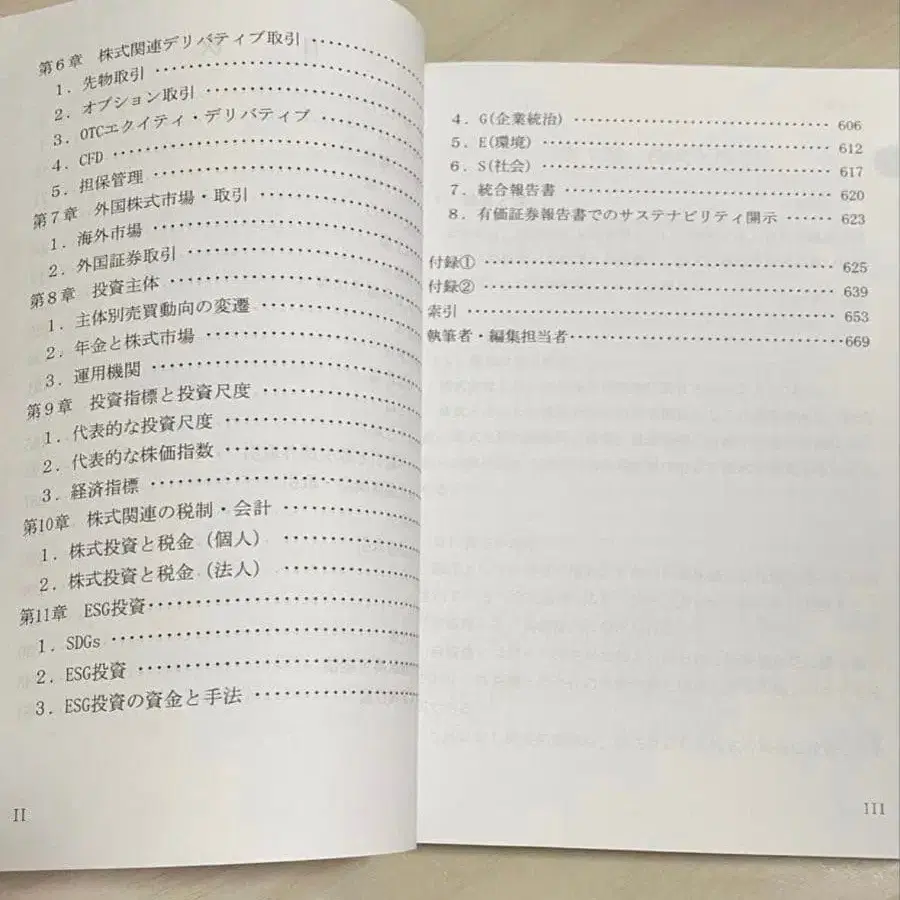 第6章　株式関連デリバティブ取引 ‥‥‥‥‥‥
1．先物取引 ‥‥‥‥‥‥‥‥‥‥
2．オプション取引 ‥‥‥‥‥‥‥‥
3．OTCエクイティ・デリバティブ ‥‥‥‥
4．CFD ‥‥‥‥‥‥‥‥‥‥‥
5．担保管理 ‥‥‥‥‥‥‥‥‥‥
第7章　外国株式市場・取引 ‥‥‥‥‥‥‥
1．海外市場 ‥‥‥‥‥‥‥‥‥‥
2．外国証券取引 ‥‥‥‥‥‥‥‥‥
第8章　投資主体 ‥‥‥‥‥‥‥‥‥‥
1．主体別売買動向の変遷 ‥‥‥‥‥‥
2．年金と株式市場 ‥‥‥‥‥‥‥‥
3．運用機関 ‥‥‥‥‥‥‥‥‥‥
第9章　投資指標と投資尺度 ‥‥‥‥‥‥
1．代表的な投資尺度 ‥‥‥‥‥‥‥
2．代表的な株価指数 ‥‥‥‥‥‥‥
3．経済指標 ‥‥‥‥‥‥‥‥‥‥
第10章　株式関連の税制・会計 ‥‥‥‥‥
1．株式投資と税金（個人） ‥‥‥‥‥
2．株式投資と税金（法人） ‥‥‥‥‥
第11章　ESG投資 ‥‥‥‥‥‥‥‥‥‥
1．SDGs ‥‥‥‥‥‥‥‥‥‥‥
2．ESG投資 ‥‥‥‥‥‥‥‥‥‥
3．ESG投資の資金と手法 ‥‥‥‥‥‥
II
4．G(企業統治) ‥‥‥‥‥‥‥‥‥‥ 606
5．E(環境) ‥‥‥‥‥‥‥‥‥‥‥ 612
6．S(社会) ‥‥‥‥‥‥‥‥‥‥‥ 617
7．統合報告書 ‥‥‥‥‥‥‥‥‥‥ 620
8．有価証券報告書でのサステナビリティ開示 ‥‥ 623
付録① ‥‥‥‥‥‥‥‥‥‥‥‥‥ 625
付録② ‥‥‥‥‥‥‥‥‥‥‥‥‥ 639
索引 ‥‥‥‥‥‥‥‥‥‥‥‥‥‥ 653
執筆者・編集担当者 ‥‥‥‥‥‥‥‥‥ 669
III